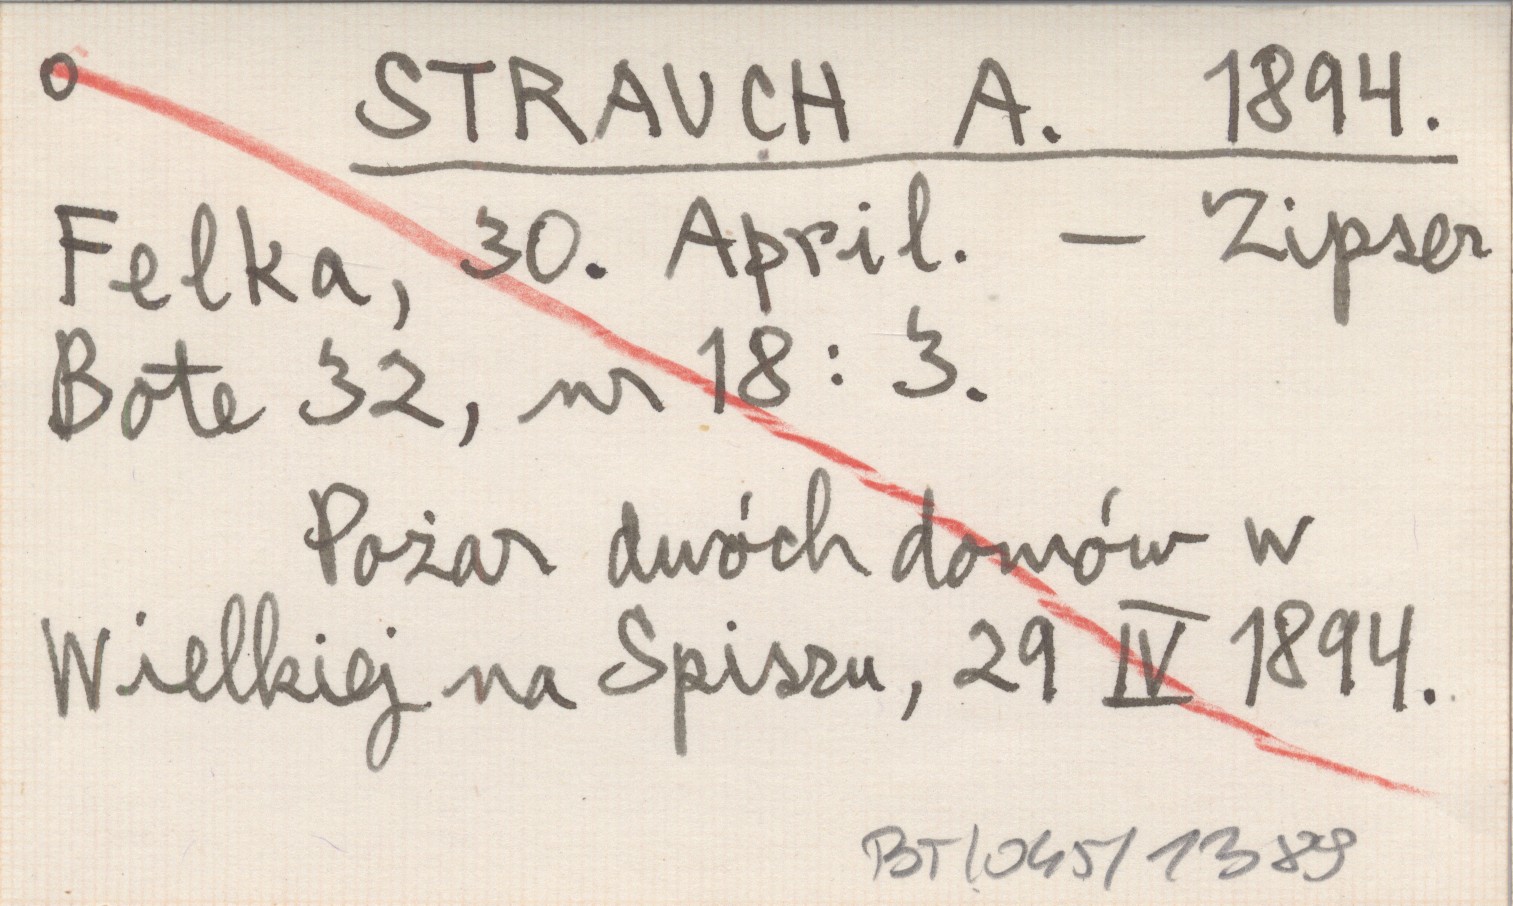 o STRAUCH A. 1894.
Felka, 30. April. — Zipser
Bote 32, nr 18 : 3.
Pożar dwóch domów w
Wielkiej na Spiszu, 29 IV 1894.
BT/045/1389